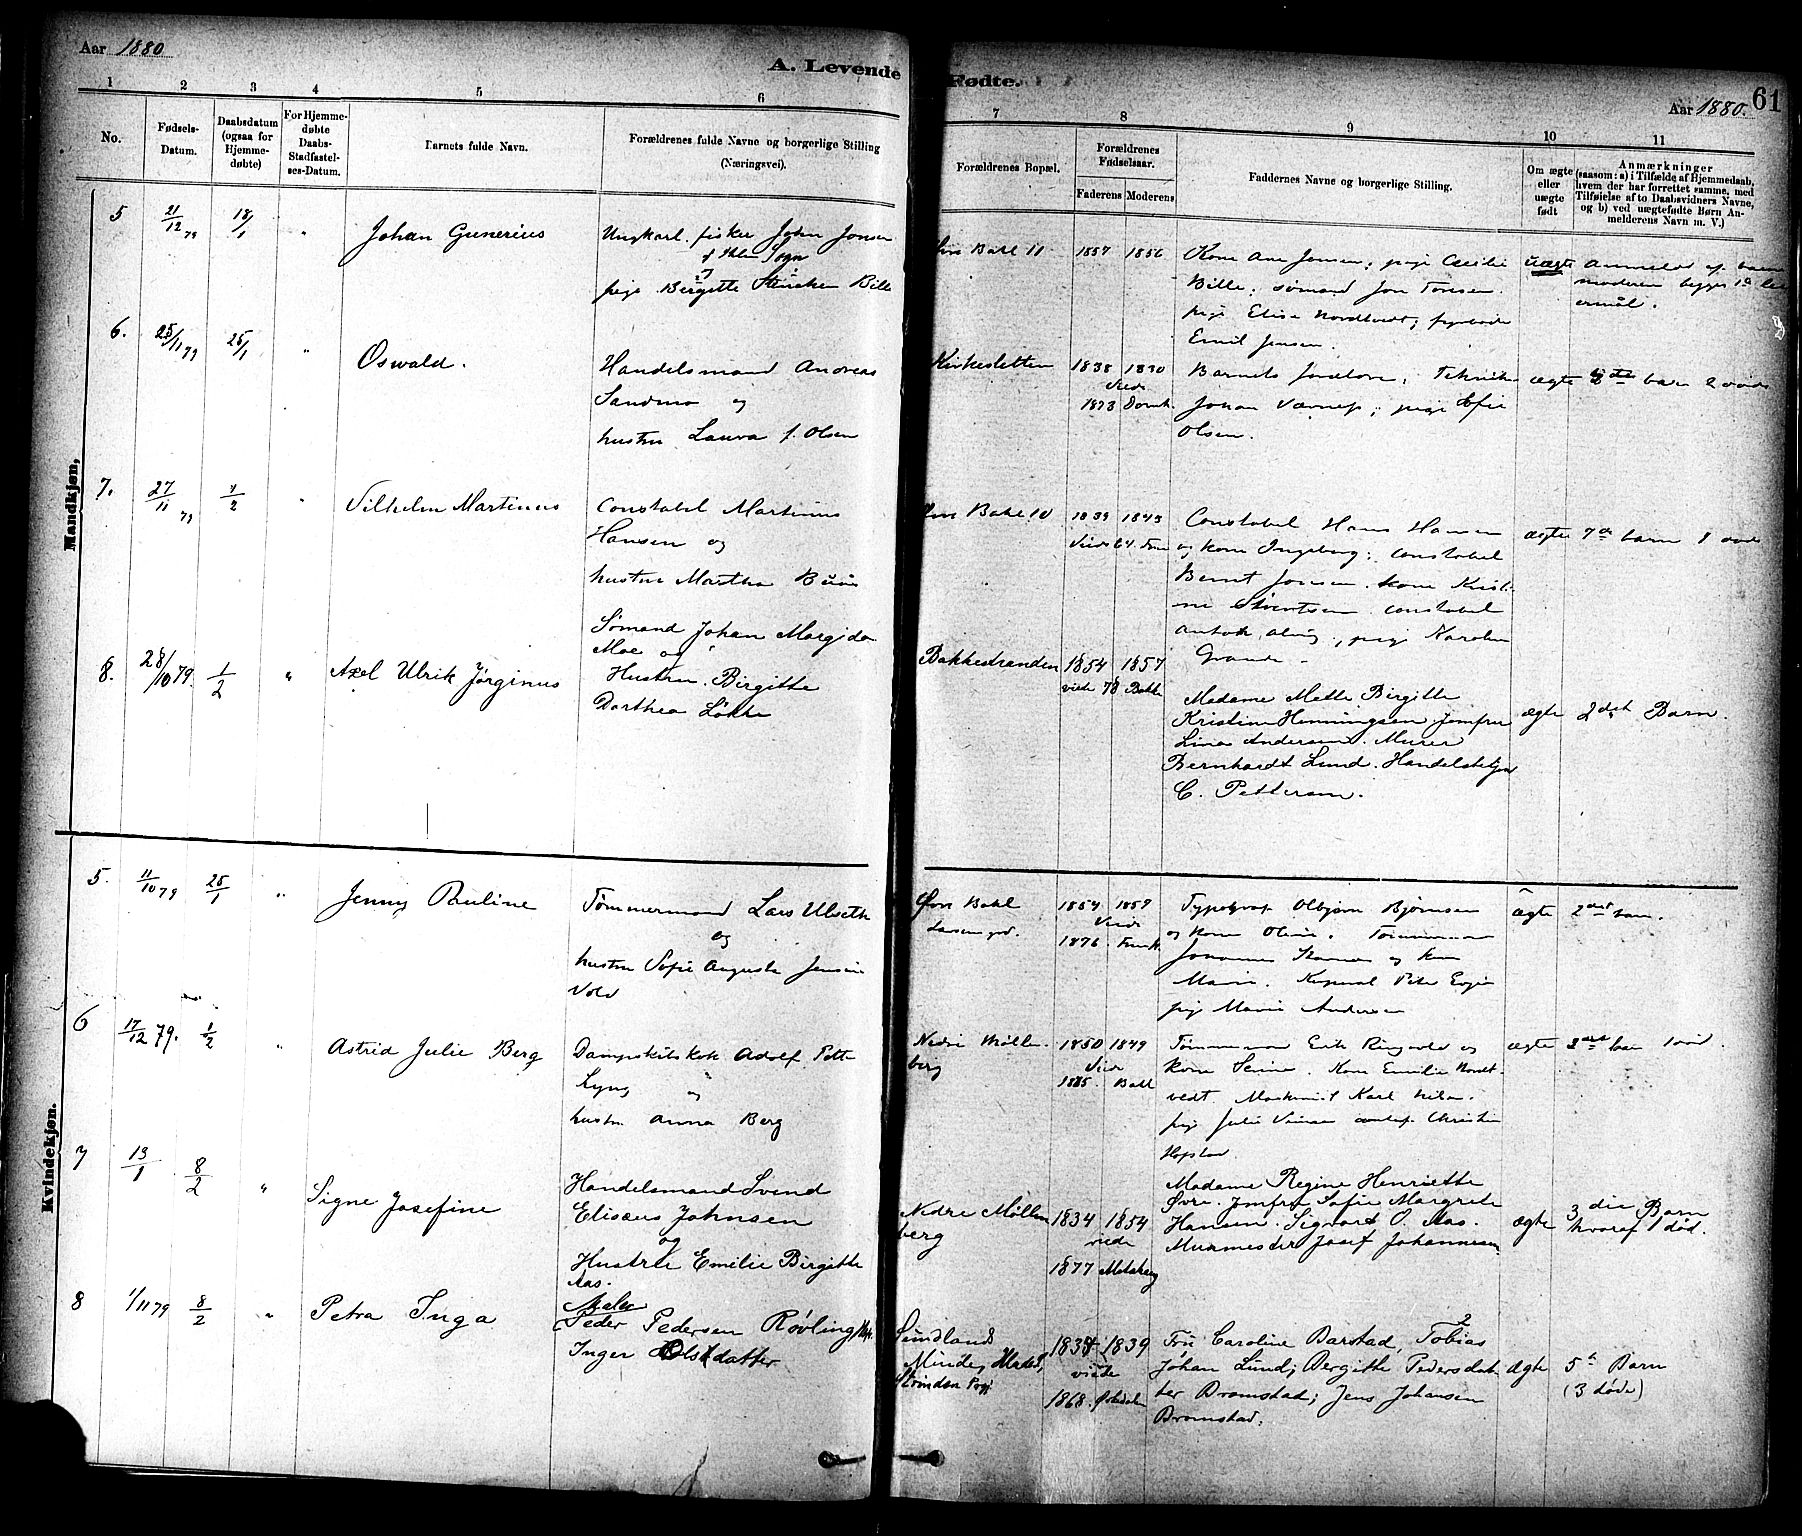 Aar 1880
A. Levende
Fødte.
Aar 1880.
61
1
2
3
4
5
6
7
8
9
10
11
No.
Fødsels-
Datum.
Daabsdatum
(ogsaa for
Hjemme-
døbte)
For Hjemme-
døbte
Daabs-
Stadfæstel-
ses-Datum.
Barnets fulde Navn.
Forældrenes fulde Navne og borgerlige Stilling
(Næringsvei).
Forældrenes Bopæl.
Forældrenes
Fødselsaar.
Faderens
Moderens
Faddernes Navne og borgerlige Stilling.
Om ægte
eller
uægte
født
Anmærkninger
(saasom: a) i Tilfælde af Hjemmedaab,
hvem der har forrettet samme, med
Tilføielse af to Daabsvidners Navne,
og b) ved uægtefødte Børn An-
melderens Navn m. V.)
Mandkjøn,
5
21/12 79
18/1
"
Johan Gunerius
Ungkarl. fisker John Jonsen
pige Birgitte Bille
Bakl 11
1857
1856
Kone Ane Jensen; pige Cecilie
Bille; sømand Jon Tonsen
pige Elise Nordtvedt;
Emil Jensen.
uægte
Anmeldt af barne
moderen begges 1ste lei
ermål.
6.
25/11 79
25/1
"
Oswald.
Handelsmand Andreas
Sandmo og
hustru Laura f. Olsen
Kirkesletten
1838
1830
Viede
1873
Domk.
Barnets forældre; Tekniker
Johan ; pige Sofie
Olsen.
ægte
barn 2 døde
7.
27/11 79
1/2
"
Vilhelm Martinus
Constabel Martinus
Hansen og
hustru Martha Buus
Bakl 10
1839
1843
Viede 64.
Constabel Hans Hansen
og kone Ingeborg; constabel
Bernt Jonsen. kone Kristi-
ne Sivertsen constabel
pige Karoline
Grande.
ægte
7de barn 1 død
8.
28/10 79.
1/2
"
Axel Ulrik Jørginus
Sømand Johan Margido
Moe og
Hustru Birgitte
Dorthea Løkke
Bakkestranden
1854
1857
viede 78
Bakke
Madame Mette Birgitte
Kristine Henningsen Jomfru
Lina Andersen. Murer
Bernhardt Lund. Handelsbetjen
C. Pettersen.
ægte
2det Barn.
Kvindekjøn.
5.
11/10 79
25/1
"
Jenny Pauline
Tømmermand Lars Ulseth
og
hustru Sofie Augusta Jensine
Vold
Øvre Bakl
1854
1859
Viede
1876.
Typograf Olbjørn Bjørnsen
og kone Oline. Tømmermand
Johannes og kone
Marie. Peter
pige Marie Andersen
ægte
2det barn.
6
17/12 79.
1/2
"
Astrid Julie Berg
Dampskibskok Adolf Petter
Lyng og
hustru Anna Berg
Nedre Møllen
berg
1850
1849
Viede
Bakl
Tømmermand Erik Ringvold og
kone Serine. Kone Emilie Nordt-
vedt. Maskinist Karl
pige Julie Christian
Hopstad.
ægte
barn 1 død.
7
13/1
8/2
"
Signe Josefine
Handelsmand Svend
Elisæus Johnsen
og
Hustru Emilie Birgitte
Aas.
Nedre Møllen
berg
1834
1854
viede
1877
Melshug
Madame Regine Henriette
Øvre. Jomfru Sofie Margrete
Hansen. Sigvart O. Aas.
Murmester Josef Johannesen
ægte
3die Barn
hvoraf 1 død.
8
1/11 79
8/2
"
Petra Inga
Maler
Peder Pedersen Røvling
Inger Olsdatter
Sundlands
Minde,
Strinden
1834
1839
viede
1868.
Fru Caroline Barstad, Tobias
Johan Lund; Bergitte Pedersdat-
ter Bromstad; Jens Johansen
Bromstad.
ægte
5te Barn
(3 døde)